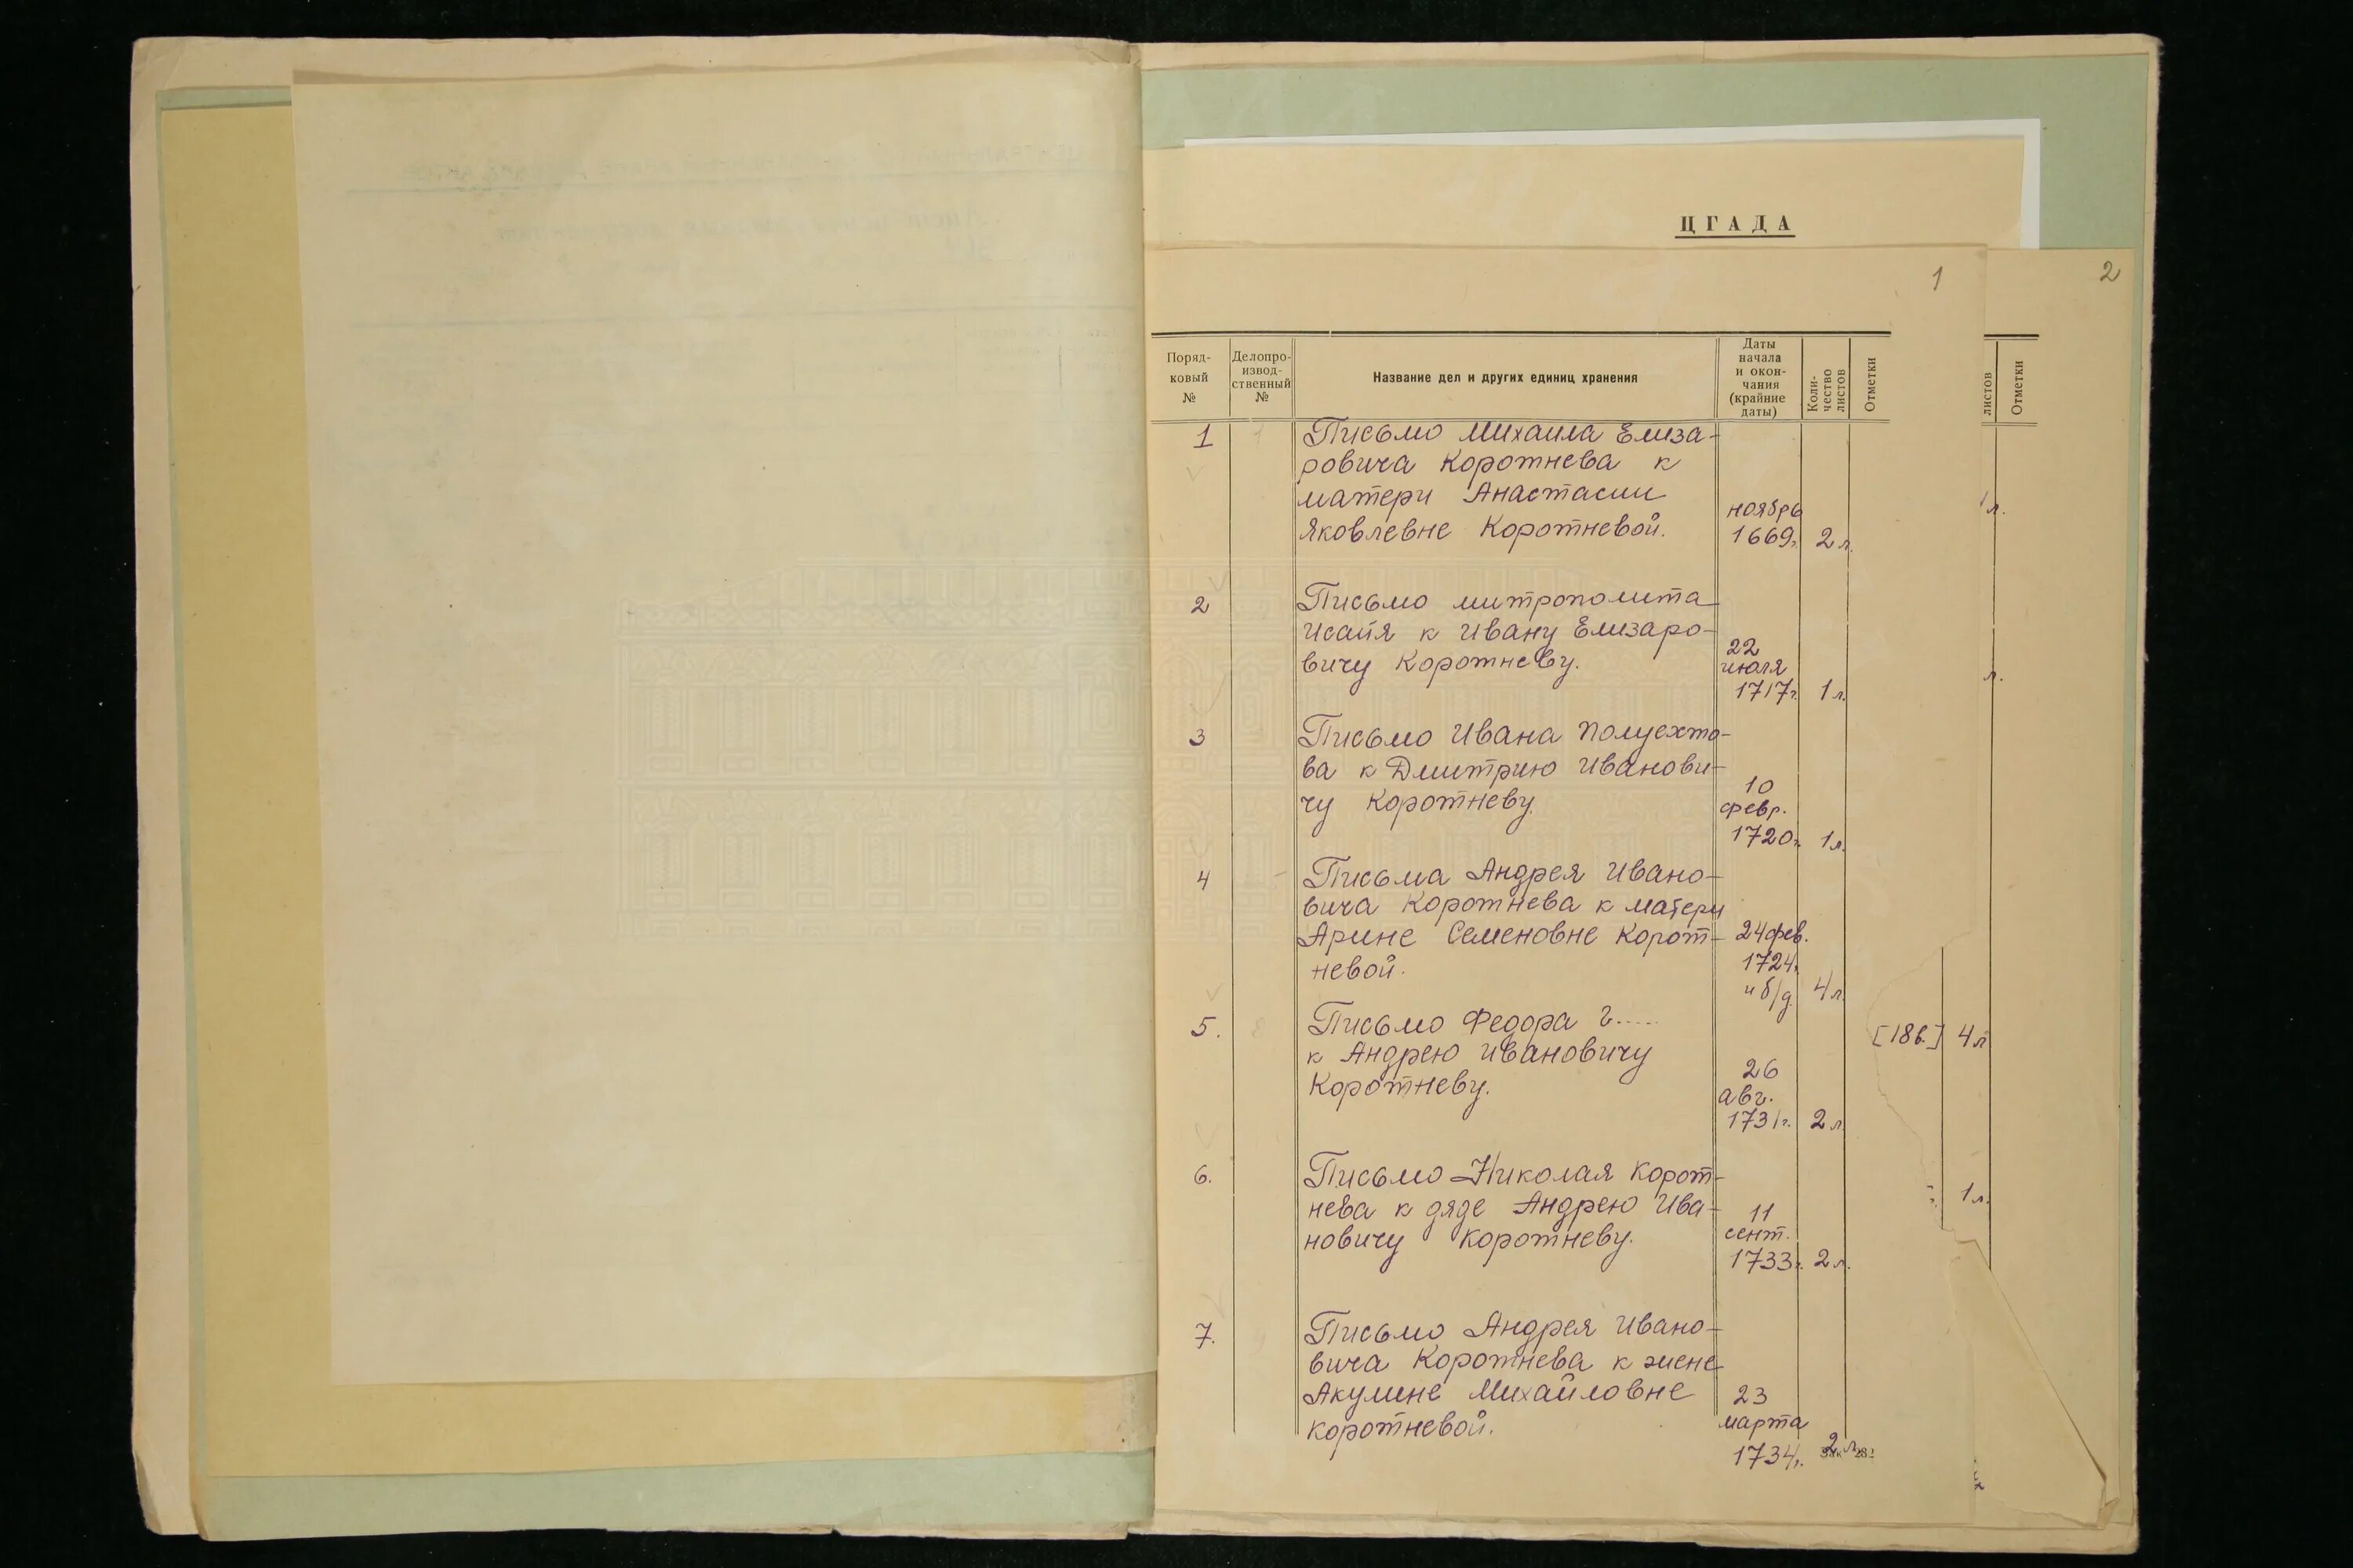 ЦГАДА
1
2
Поряд-
ковый
№
Делопро-
извод-
ственный
№
Название дел и других единиц хранения
Даты
начала
и окон-
чания
(крайние
даты)
Коли-
чество
листов
Отметки
листов
Отметки
1
Письмо Михаила Елиза-
ровича Коротнева к
матери Анастасии
Яковлевне Коротневой.
ноябрь
1669г.
2 л.
1 л.
2
Письмо митрополита
Исайя к Ивану Елизаро-
вичу Коротневу.
22
июля
1717г.
1 л.
л.
3
Письмо Ивана Полуехто-
ва к Дмитрию Иванови-
чу Коротневу.
10
февр.
1720г.
1 л.
4
Письма Андрея Ивано-
вича Коротнева к матери
Арине Семеновне Корот-
невой.
24 фев.
1724г.
и б/д.
4 л.
5.
Письмо Федора Г.....
к Андрею Ивановичу
Коротневу.
26
авг.
1731г.
2 л.
[18в.]
4 л
6.
Письмо Николая Корот-
нева к дяде Андрею Ива-
новичу Коротневу.
11
сент.
1733г.
2 л.
1 л.
7.
Письмо Андрея Ивано-
вича Коротнева к жене
Акулине Михайловне
Коротневой.
23
марта
1734г.
2 л.